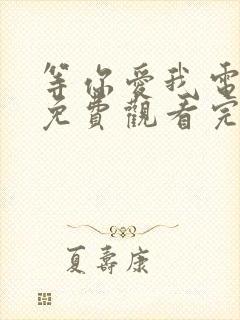 等你愛我電
免費觀看完
夏壽康